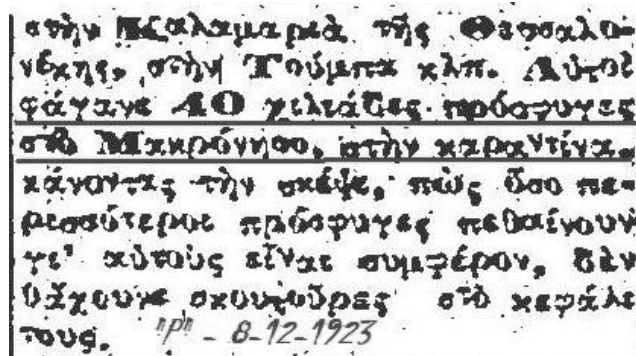 στὴν Καλαμαριὰ τῆς Θεσσαλο-
νίκης, στὴν Τούμπα κλπ. Αὐτοὶ
φάγανε 40 χιλιάδες πρόσφυγες
στὸ Μακρόνησο, στὴν καραντίνα,
κάνοντας τὴν σκέψι, πὼς ὅσο πε-
ρισσότεροι πρόσφυγες πεθαίνουν
γι' αὐτοὺς εἶναι συμφέρον, δὲν
θἄχουνε σκουτοῦρες στὸ κεφάλι
τους. "Ρ" - 8-12-1923